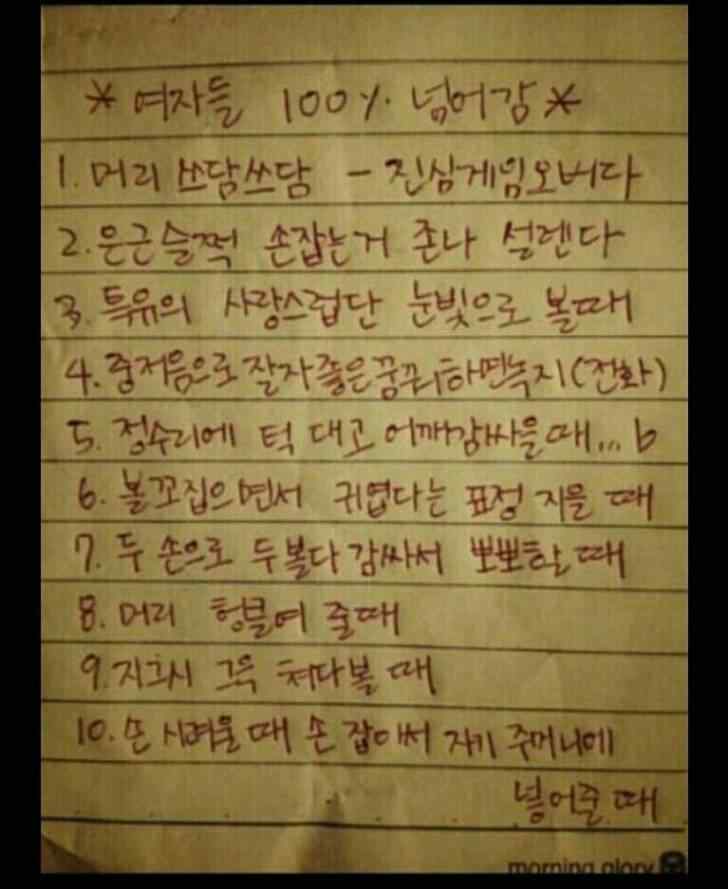 * 여자들 100% 넘어감 *
1. 머리 쓰담쓰담 - 진심게임오버다
2. 은근슬쩍 손잡는거 존나 설렌다
3. 특유의 사랑스럽단 눈빛으로 볼때
4. 중저음으로 잘자 좋은꿈꿔하면녹지(전화)
5. 정수리에 턱 대고 어깨감싸올때... b
6. 볼꼬집으면서 귀엽다는 표정 지을 때
7. 두 손으로 두볼다 감싸서 뽀뽀할 때
8. 머리 헝클여 줄때
9. 지그시 그윽 쳐다볼 때
10. 손 시려울 때 손 잡아서 자기 주머니에
넣어줄 때
morning glory